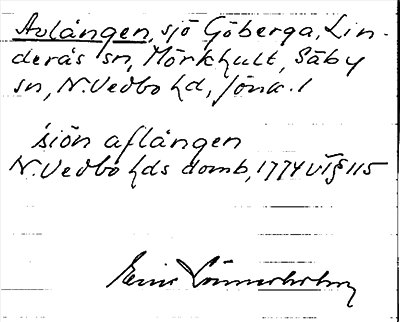 Avlången, sjö Göberga, Lin-
derås sn, Mörkhult, Säby
sn, N. Vedbo hd, Jönk. l
siön aflången
N. Vedbo hds domb, 1774 VT § 115